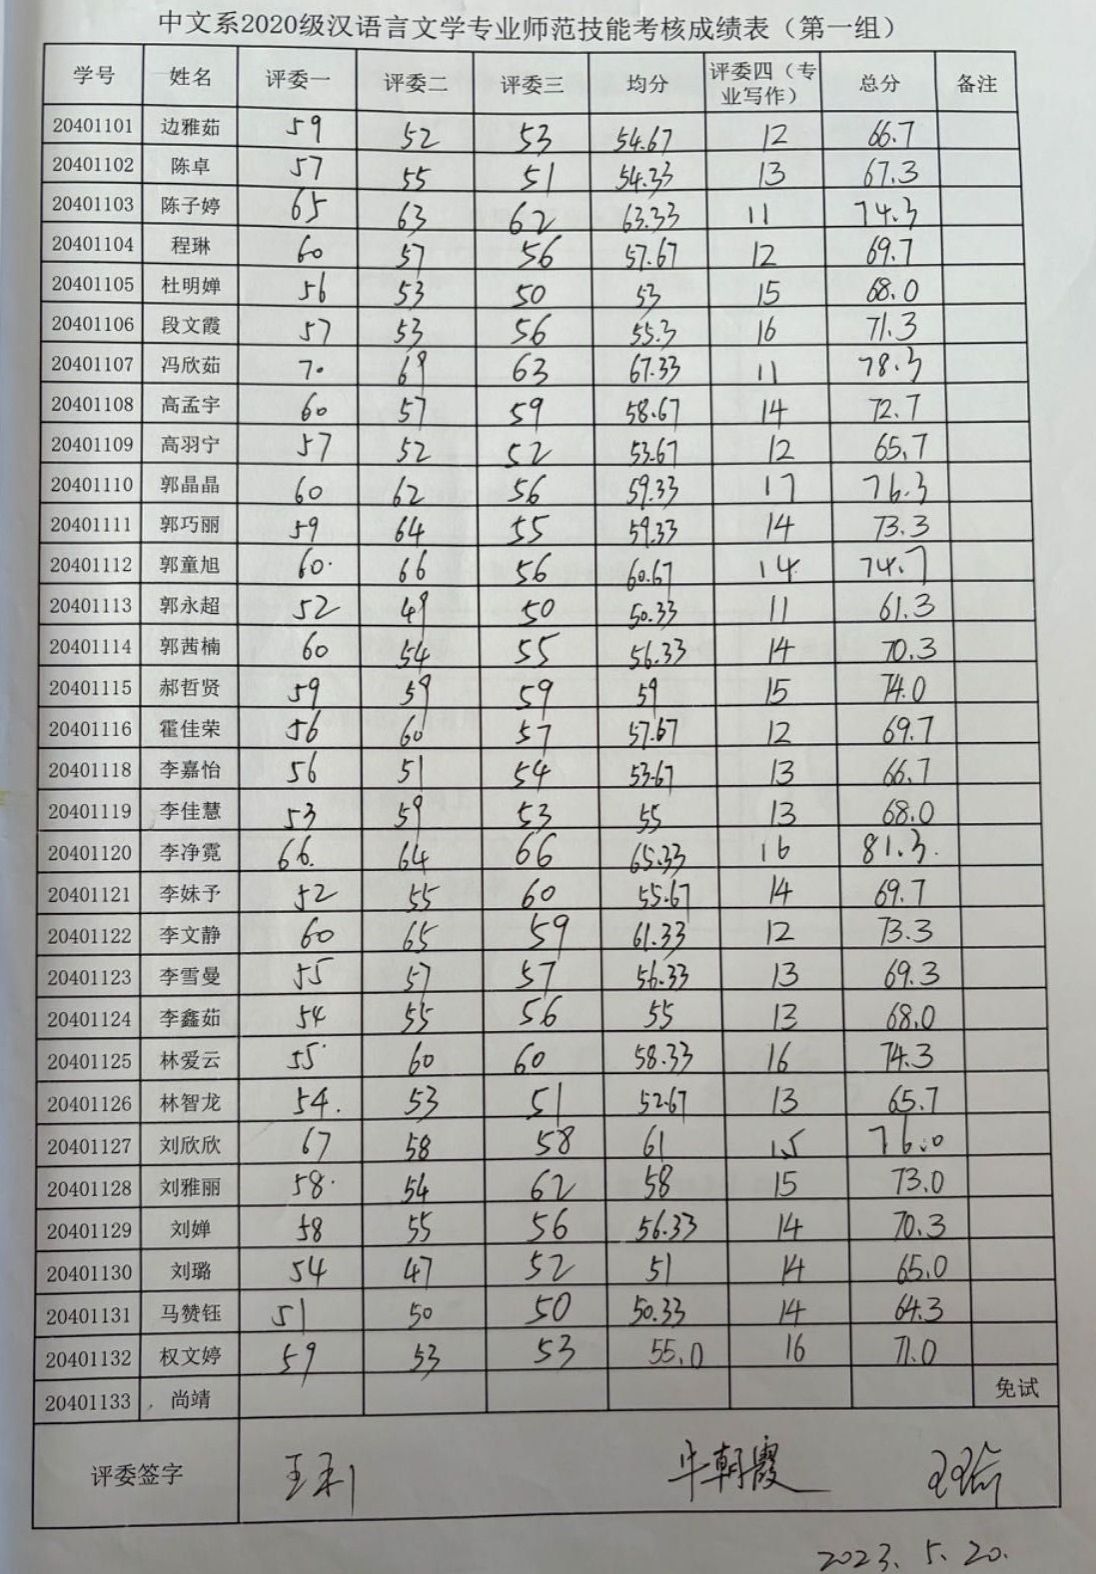 中文系2020级汉语言文学专业师范技能考核成绩表（第一组）
学号 姓名 评委一 评委二 评委三 均分 评委四（专业写作） 总分 备注
20401101 边雅茹 59 52 53 54.67 12 66.7
20401102 陈卓 57 55 51 54.33 13 67.3
20401103 陈子婷 65 63 62 63.33 11 74.3
20401104 程琳 60 57 56 57.67 12 69.7
20401105 杜明婵 56 53 50 53 15 68.0
20401106 段文霞 57 53 56 55.3 16 71.3
20401107 冯欣茹 70 69 63 67.33 11 78.3
20401108 高孟宇 60 57 59 58.67 14 72.7
20401109 高羽宁 57 52 52 53.67 12 65.7
20401110 郭晶晶 60 62 56 59.33 17 76.3
20401111 郭巧丽 59 64 55 59.33 14 73.3
20401112 郭童旭 60. 66 56 60.67 14. 74.7
20401113 郭永超 52 49 50 50.33 11 61.3
20401114 郭茜楠 60 54 55 56.33 14 70.3
20401115 郝哲贤 59 59 59 59 15 74.0
20401116 霍佳荣 56 60 57 57.67 12 69.7
20401118 李嘉怡 56 51 54 53.67 13 66.7
20401119 李佳慧 53 59 53 55 13 68.0
20401120 李净霓 66. 64 66 65.33 16 81.3.
20401121 李妹予 52 55 60 55.67 14 69.7
20401122 李文静 60 65 59 61.33 12 73.3
20401123 李雪曼 55 57 57 56.33 13 69.3
20401124 李鑫茹 54 55 56 55 13 68.0
20401125 林爱云 55 60 60 58.33 16 74.3
20401126 林智龙 54. 53 51 52.67 13 65.7
20401127 刘欣欣 67 58 58 61 15 76.0
20401128 刘雅丽 58. 54 62 58 15 73.0
20401129 刘婵 58 55 56 56.33 14 70.3
20401130 刘璐 54 47 52 51 14 65.0
20401131 马赞钰 51 50 50 50.33 14 64.3
20401132 权文婷 59 53 53 55.0 16 71.0
20401133 尚靖 免试
评委签字 王利 牛朝霞
2023.5.20.